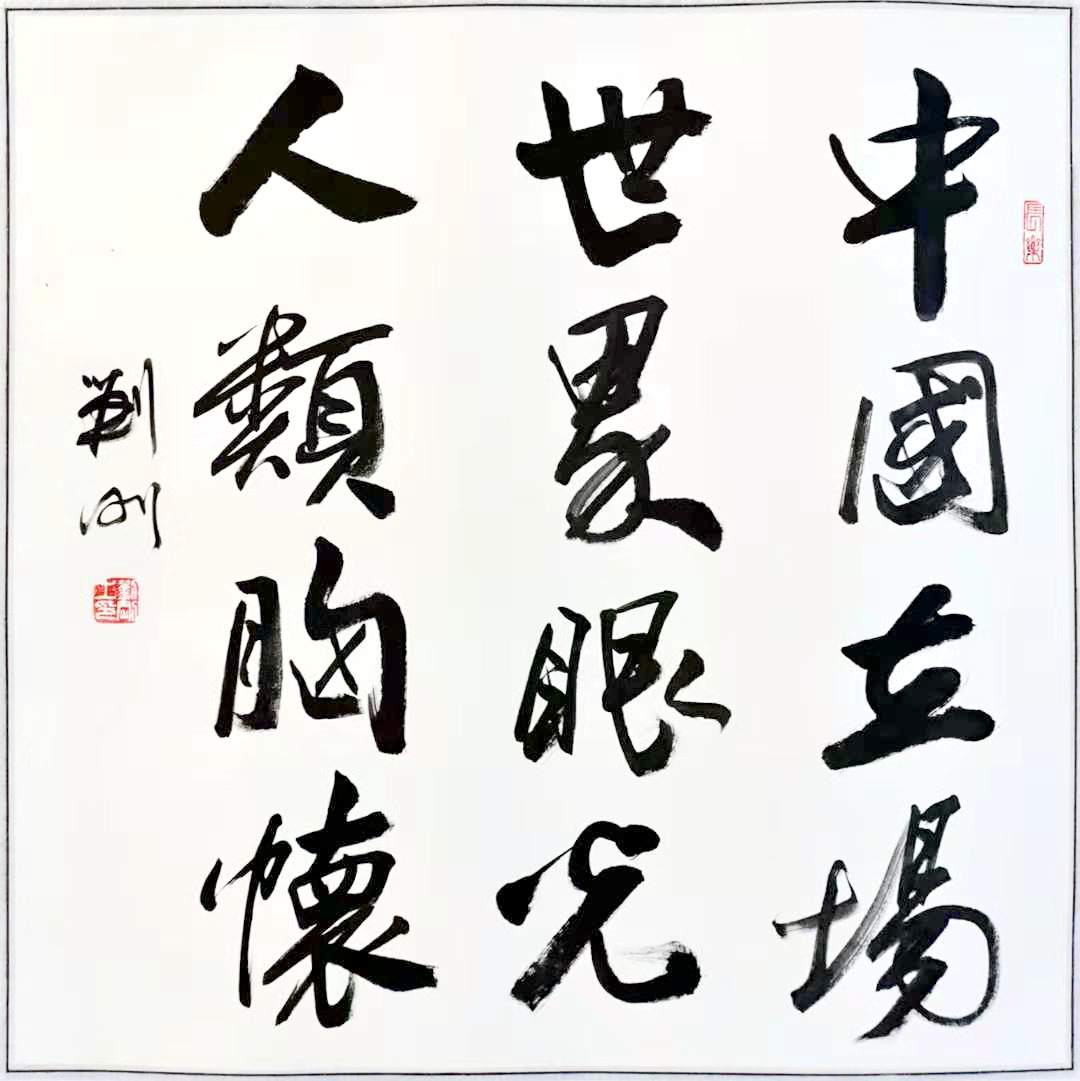 中國立場
世界眼光
人類胸懷
長樂